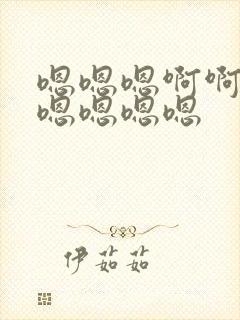 嗯嗯嗯啊啊
嗯嗯嗯嗯
伊茹茹